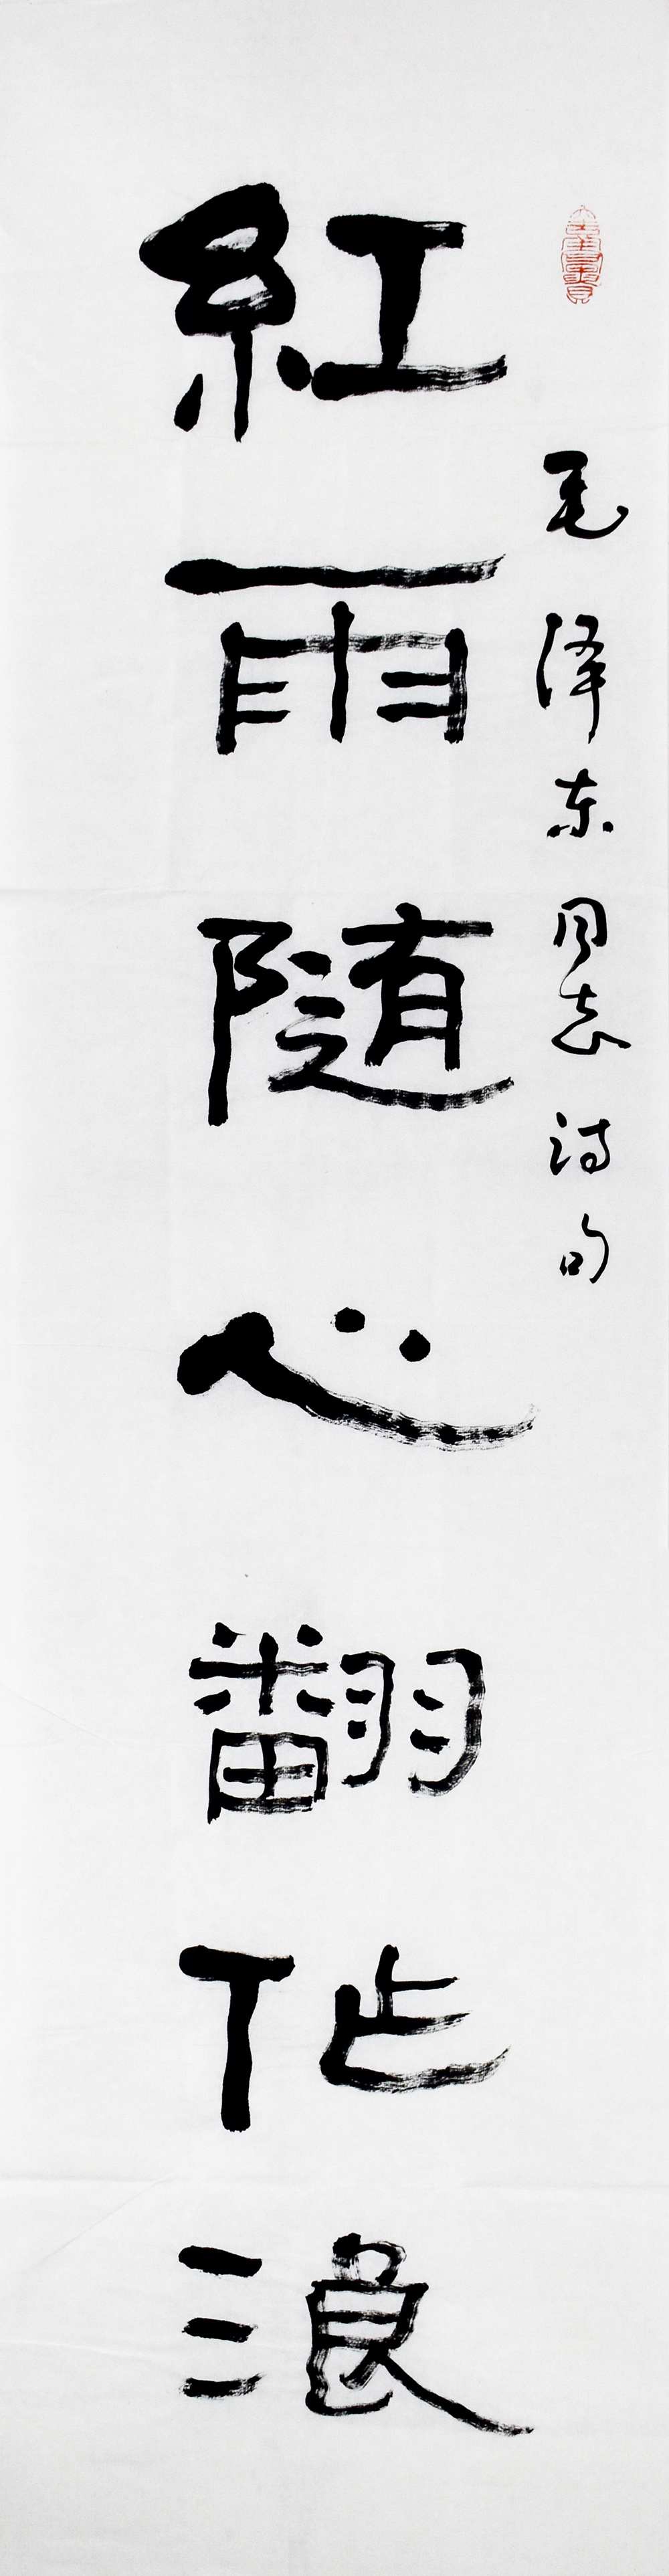 毛泽东同志诗句
紅雨随心翻作浪